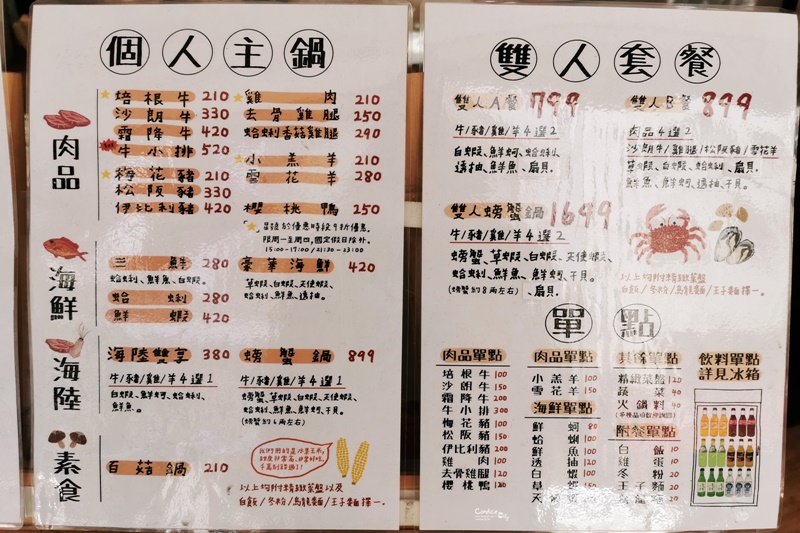 個人主鍋
肉品
培根牛 210
沙朗牛 330
霜降牛 420
牛小排 520
梅花豬 210
松阪豬 330
伊比利豬 420
雞肉 210
去骨雞腿 250
蛤蜊香菇雞腿 290
小羔羊 210
雪花羊 280
櫻桃鴨 250
限周一至周四,國定假日除外。
15:00-17:00/21:30-23:00
海鮮
三鮮 280
蛤蜊、鮮魚、白蝦。
蛤蜊 280
鮮蝦 420
豪華海鮮 420
草蝦、白蝦、天使蝦、
蛤蜊、鮮魚、透抽。
海陸
海陸雙享 380
牛/豬/雞/羊4選1
白蝦、鮮蚵、蛤蜊、
鮮魚。
螃蟹鍋 899
牛/豬/雞/羊4選1
螃蟹、草蝦、白蝦、天使蝦、
蛤蜊、鮮魚、鮮蚵、干貝。
(螃蟹約6兩左右)
素食
百菇鍋 210
以上均附精緻菜盤以及
白飯/冬粉/烏龍麵/王子麵擇一。
雙人套餐
雙人A餐 799
牛/豬/雞/羊4選2
白蝦、鮮蚵、蛤蜊、
透抽、鮮魚、扇貝。
雙人B餐 899
肉品4選2
沙朗牛/雞腿/松阪豬/雪花羊
草蝦、白蝦、蛤蜊、扇貝、
鮮魚、鮮蚵、透抽、干貝。
雙人螃蟹鍋 1699
牛/豬/雞/羊4選2
螃蟹、草蝦、白蝦、天使蝦、
蛤蜊、鮮魚、鮮蚵、干貝、
(螃蟹約8兩左右)、扇貝。
以上均附精緻菜盤
白飯/冬粉/烏龍麵/王子麵擇一。
單點
肉品單點
培根牛 100
沙朗牛 150
霜降牛 200
牛小排 300
梅花豬 100
松阪豬 150
伊比利豬 200
雞肉 100
去骨雞腿 120
櫻桃鴨 120
肉品單點
小羔羊 100
雪花羊 150
海鮮單點
鮮蚵 80
蛤蜊 100
鮮魚 100
透抽 120
白蝦 100
草蝦 150
其餘單點
精緻菜盤 120
蔬菜 40
火鍋料 40
附餐單點
白飯 10
雞蛋 10
冬粉 20
王子麵 20
烏龍麵 20
飲料單點
詳見冰箱